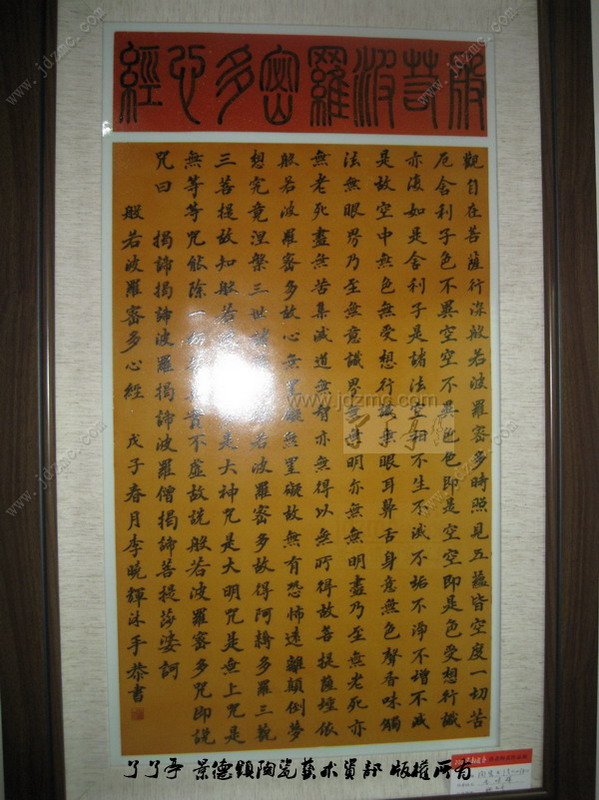 般若波羅密多心經
觀自在菩薩行深般若波羅密多時照見五蘊皆空度一切苦
厄舍利子色不異空空不異色色即是空空即是色受想行識
亦復如是舍利子是諸法空相不生不滅不垢不淨不增不減
是故空中無色無受想行識無眼耳鼻舌身意無色聲香味觸
法無眼界乃至無意識界無無明亦無無明盡乃至無老死亦
無老死盡無苦集滅道無智亦無得以無所得故菩提薩埵依
般若波羅密多故心無罣礙無罣礙故無有恐怖遠離顛倒夢
想究竟涅槃三世諸若波羅密多故得阿耨多羅三藐
三菩提故知般若是大神咒是大明咒是無上咒是
無等等咒能除一切實不虛故說般若波羅密多咒即說
咒曰 揭諦揭諦波羅揭諦波羅僧揭諦菩提莎婆訶
般若波羅密多心經 戊子春月李晚輝沐手恭書
www.jdzmc.com
了了亭 景德鎮陶瓷藝術資訊 版權所有